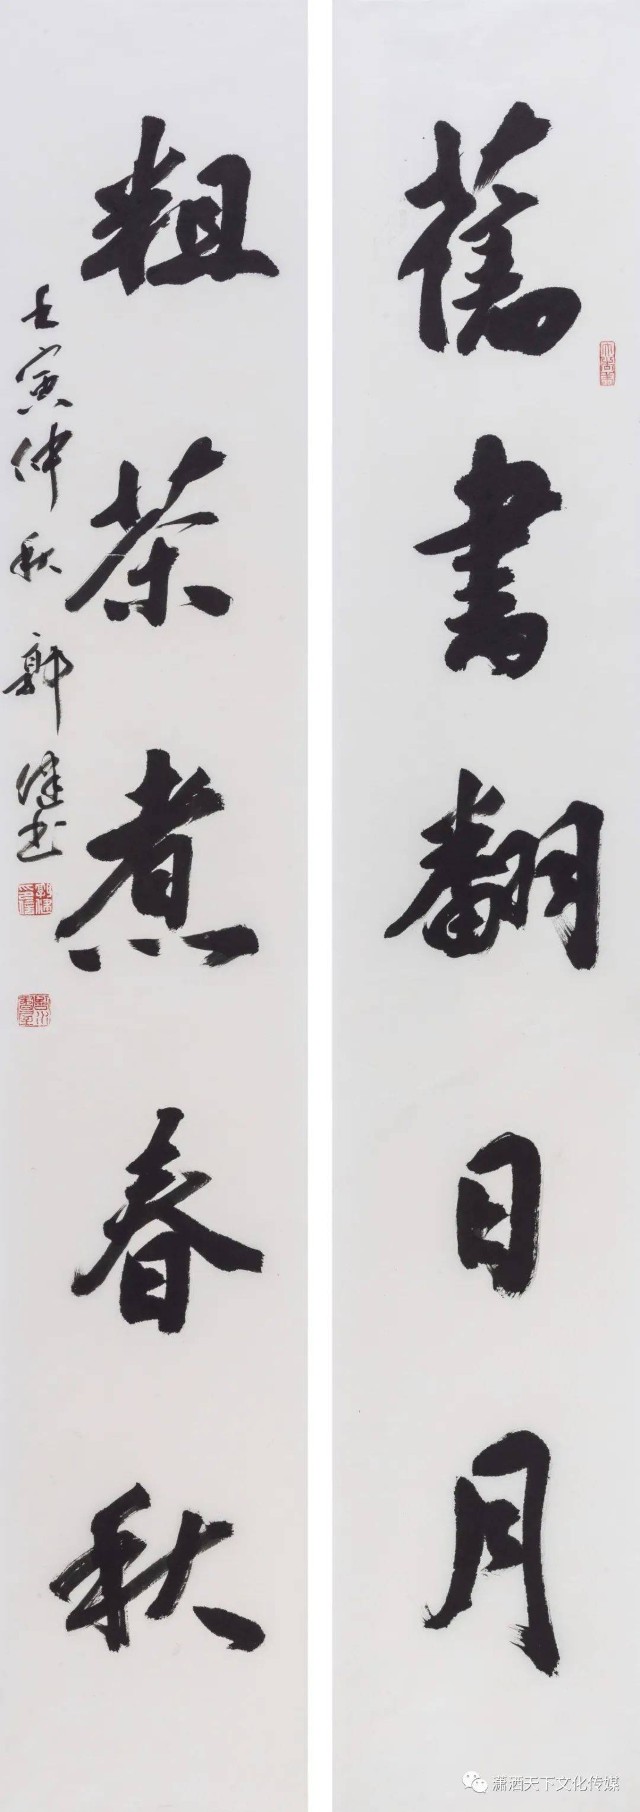 舊書翻日月
粗茶煮春秋
壬寅仲秋郭健书
潇洒天下文化传媒